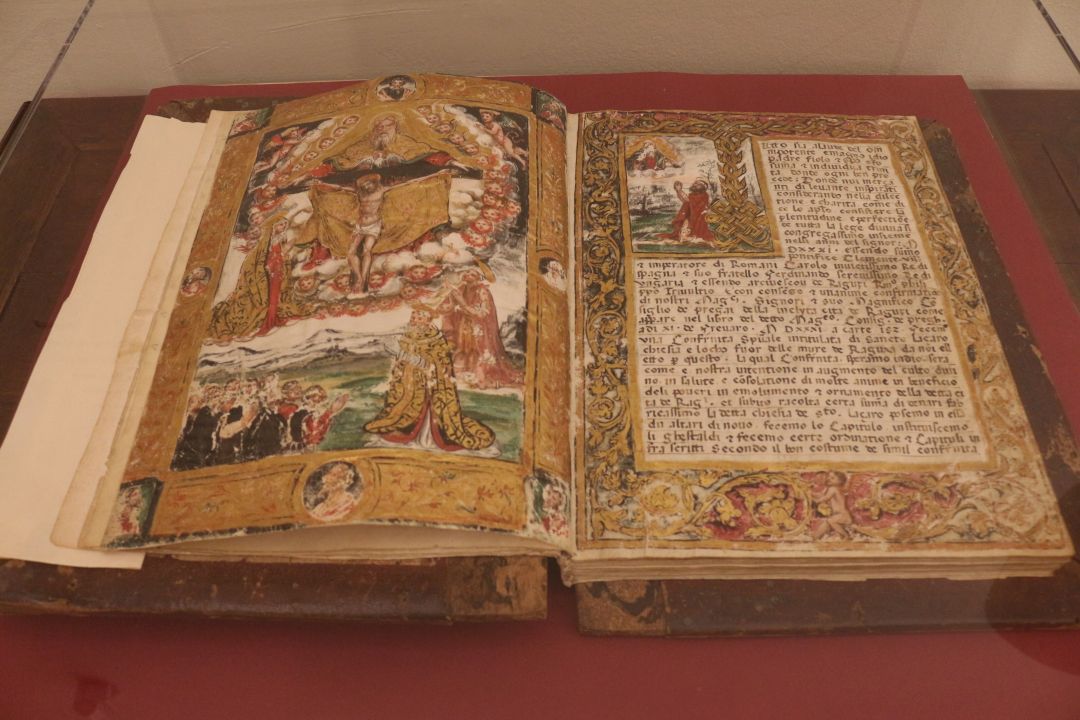 tto sia alaude del om
nipotente emagno idio
padre fiolo & spo sto
suma & individua trini
ta donde ogni ben pro
cede: Donde nui merca
nti di levante inspirati
considerando nella dilec
tione e charita come di
ce lo apło consistere la
plenitudine e perfectione
de tutta la lege divina si
congregassimo insieme
nelli anni del signor: M
DXXXI. essendo sumo
pontifice Clemente
& imperatore di Romani Carolo invictissimo Re di
spagna & suo fratello Ferdinando serenissimo Re di
Ungaria & essendo arcivescou de Raguxi philip
ppo Trivultio & con consesso & unanime confirmatiōe
di nostri Signori & suo Magnifico Cō
siglio de pregai della inclyta cita de Raguxi come
appare nel libro del detto Mag.co Consig. de pregai
adi XI. de Frevaro. M DXXXI. a carte 152 Fecemo
una Confrnita Spūale intitulata di Sancto Lazaro
chiesia e locho fuor delle mure de Ragusa da noi el
letto p questo. la qual Confrnita speramo indio sera
come e nostra intentione in augmento del culto divi
no. in salute e cōsolatione di molte anime in beneficio
deli poveri in emolumento & ornamento della detta ci
ta de Rag. et subito racolta certa suma di denari fab
ricassimo la detta chiesia de Sto. Lazaro posemo in essa
du altari di novo. fecemo lo Capitulo instituiscemo
li ghestaldi & fecemo certe ordinatione & Capituli in
fra scritti Secondo il bon costume de simil confrnita